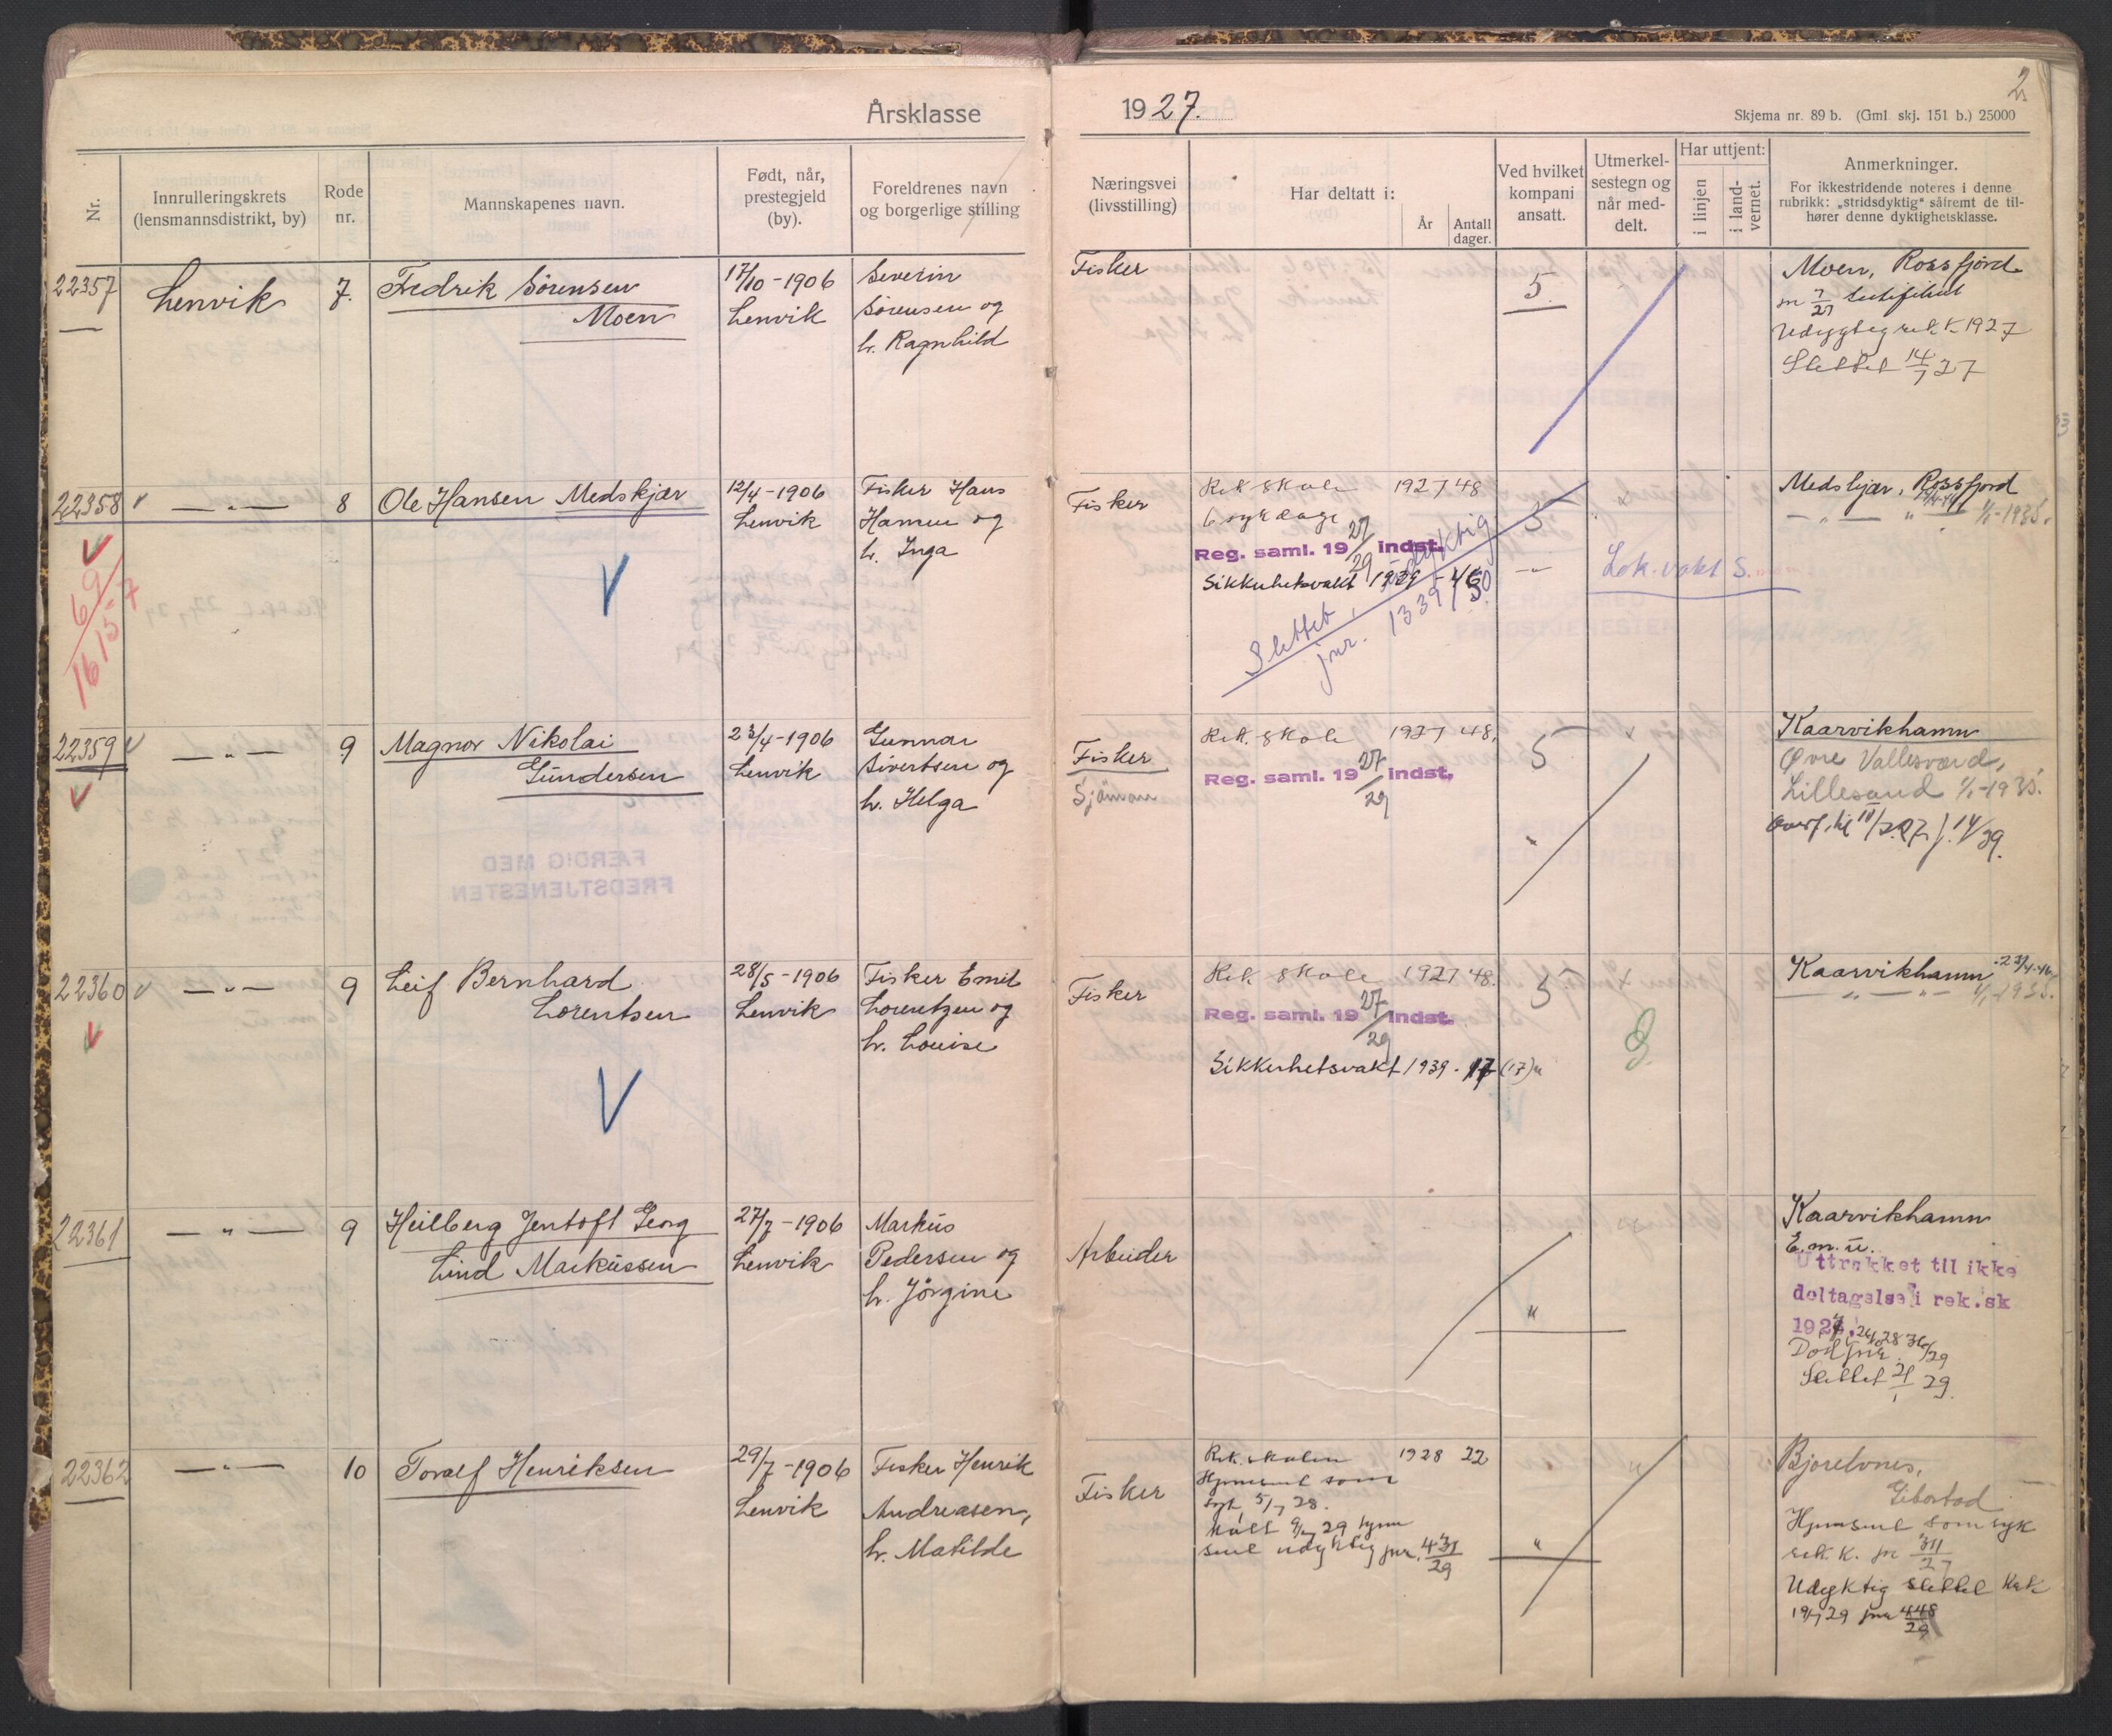 2
Årsklasse 1927.
Skjema nr. 89 b. (Gml. skj. 151 b.) 25000
Nr.
Innrulleringskrets
(lensmannsdistrikt, by)
Rode
nr.
Mannskapenes navn.
Født, når,
prestegjeld
(by).
Foreldrenes navn
og borgerlige stilling
Næringsvei
(livsstilling)
Har deltatt i:
År
Antall
dager.
Ved hvilket
kompani
ansatt.
Utmerkel-
sestegn og
når med-
delt.
Har uttjent:
i linjen
i land-
vernet.
Anmerkninger.
For ikkestridende noteres i denne
rubrikk: „stridsdyktig“ såfremt de til-
hører denne dyktighetsklasse.
22357
Lenvik
7.
Fredrik Sørensen
Moen
17/10-1906
Lenvik
Severin
Sørensen og
h. Ragnhild
Fisker
5.
Moen, Rossfjord
Udygtig rek. k. 1927
Slettet 14/7 27
22358
— „ —
8
Ole Hansen Medskjær
12/4-1906
Lenvik
Fisker Hans
Hansen og
h. Inga
69
1615-7
Fisker
Rek. skole 1927 48
6 sykedage
Reg. saml. 1927/29 indst.
Sikkerhetsvakt 1939 - 46
Slettet, udyktig
jnr. 1339/50
5
— „ —
x
Lok. vakt S.
Medskjær, Rossfjord
— „ — „ — 1/1-1935.
22359
— „ —
9
Magnor Nikolai
Gundersen
23/4-1906
Lenvik
Gunnar
Sivertsen og
h. Helga
Fisker
Sjömann
Rek. skole 1927 48.
Reg. saml. 1927/29 indst.
5
„
x
Kaarvikhamn
Øvre Vallesværd,
Lillesand 1/1-1935.
22360
— „ —
9
Leif Bernhard
Lorentsen
28/5-1906
Lenvik
Fisker Emil
Lorentzen og
h. Louise
Fisker
Rek. skole 1927 48.
Reg. saml. 1927/29 indst.
Sikkerhetsvakt 1939 - 17 (17) „
5.
x
Kaarvikhamn 23/4-46
— „ — „ — 1/1-1935.
22361
— „ —
9
Heilberg Jentoft Georg
Lind Markussen
27/7-1906
Lenvik
Markus
Pedersen og
h. Jørgine
Arbeider
„
Kaarvikhamn
E.m.u.
Uttrukket til ikke
deltagelse i rek.sk
1927.
Død jnr.
Slettet 21/1 29.
22362
— „ —
10
Toralf Henriksen
29/7-1906
Lenvik
Fisker Henrik
Andreasen,
h. Matilde
Fisker
Rek. skolen 1928 22
Hjemsent som
syk 5/7 28.
29 hjem
sent udyktig jnr. 431/29
„
Bjorelvnes,
Gibostad
Hjemsent som syk
rek. k. jnr 311/27
Udyktig slettet Rek
19/7 29 jnr 448/29